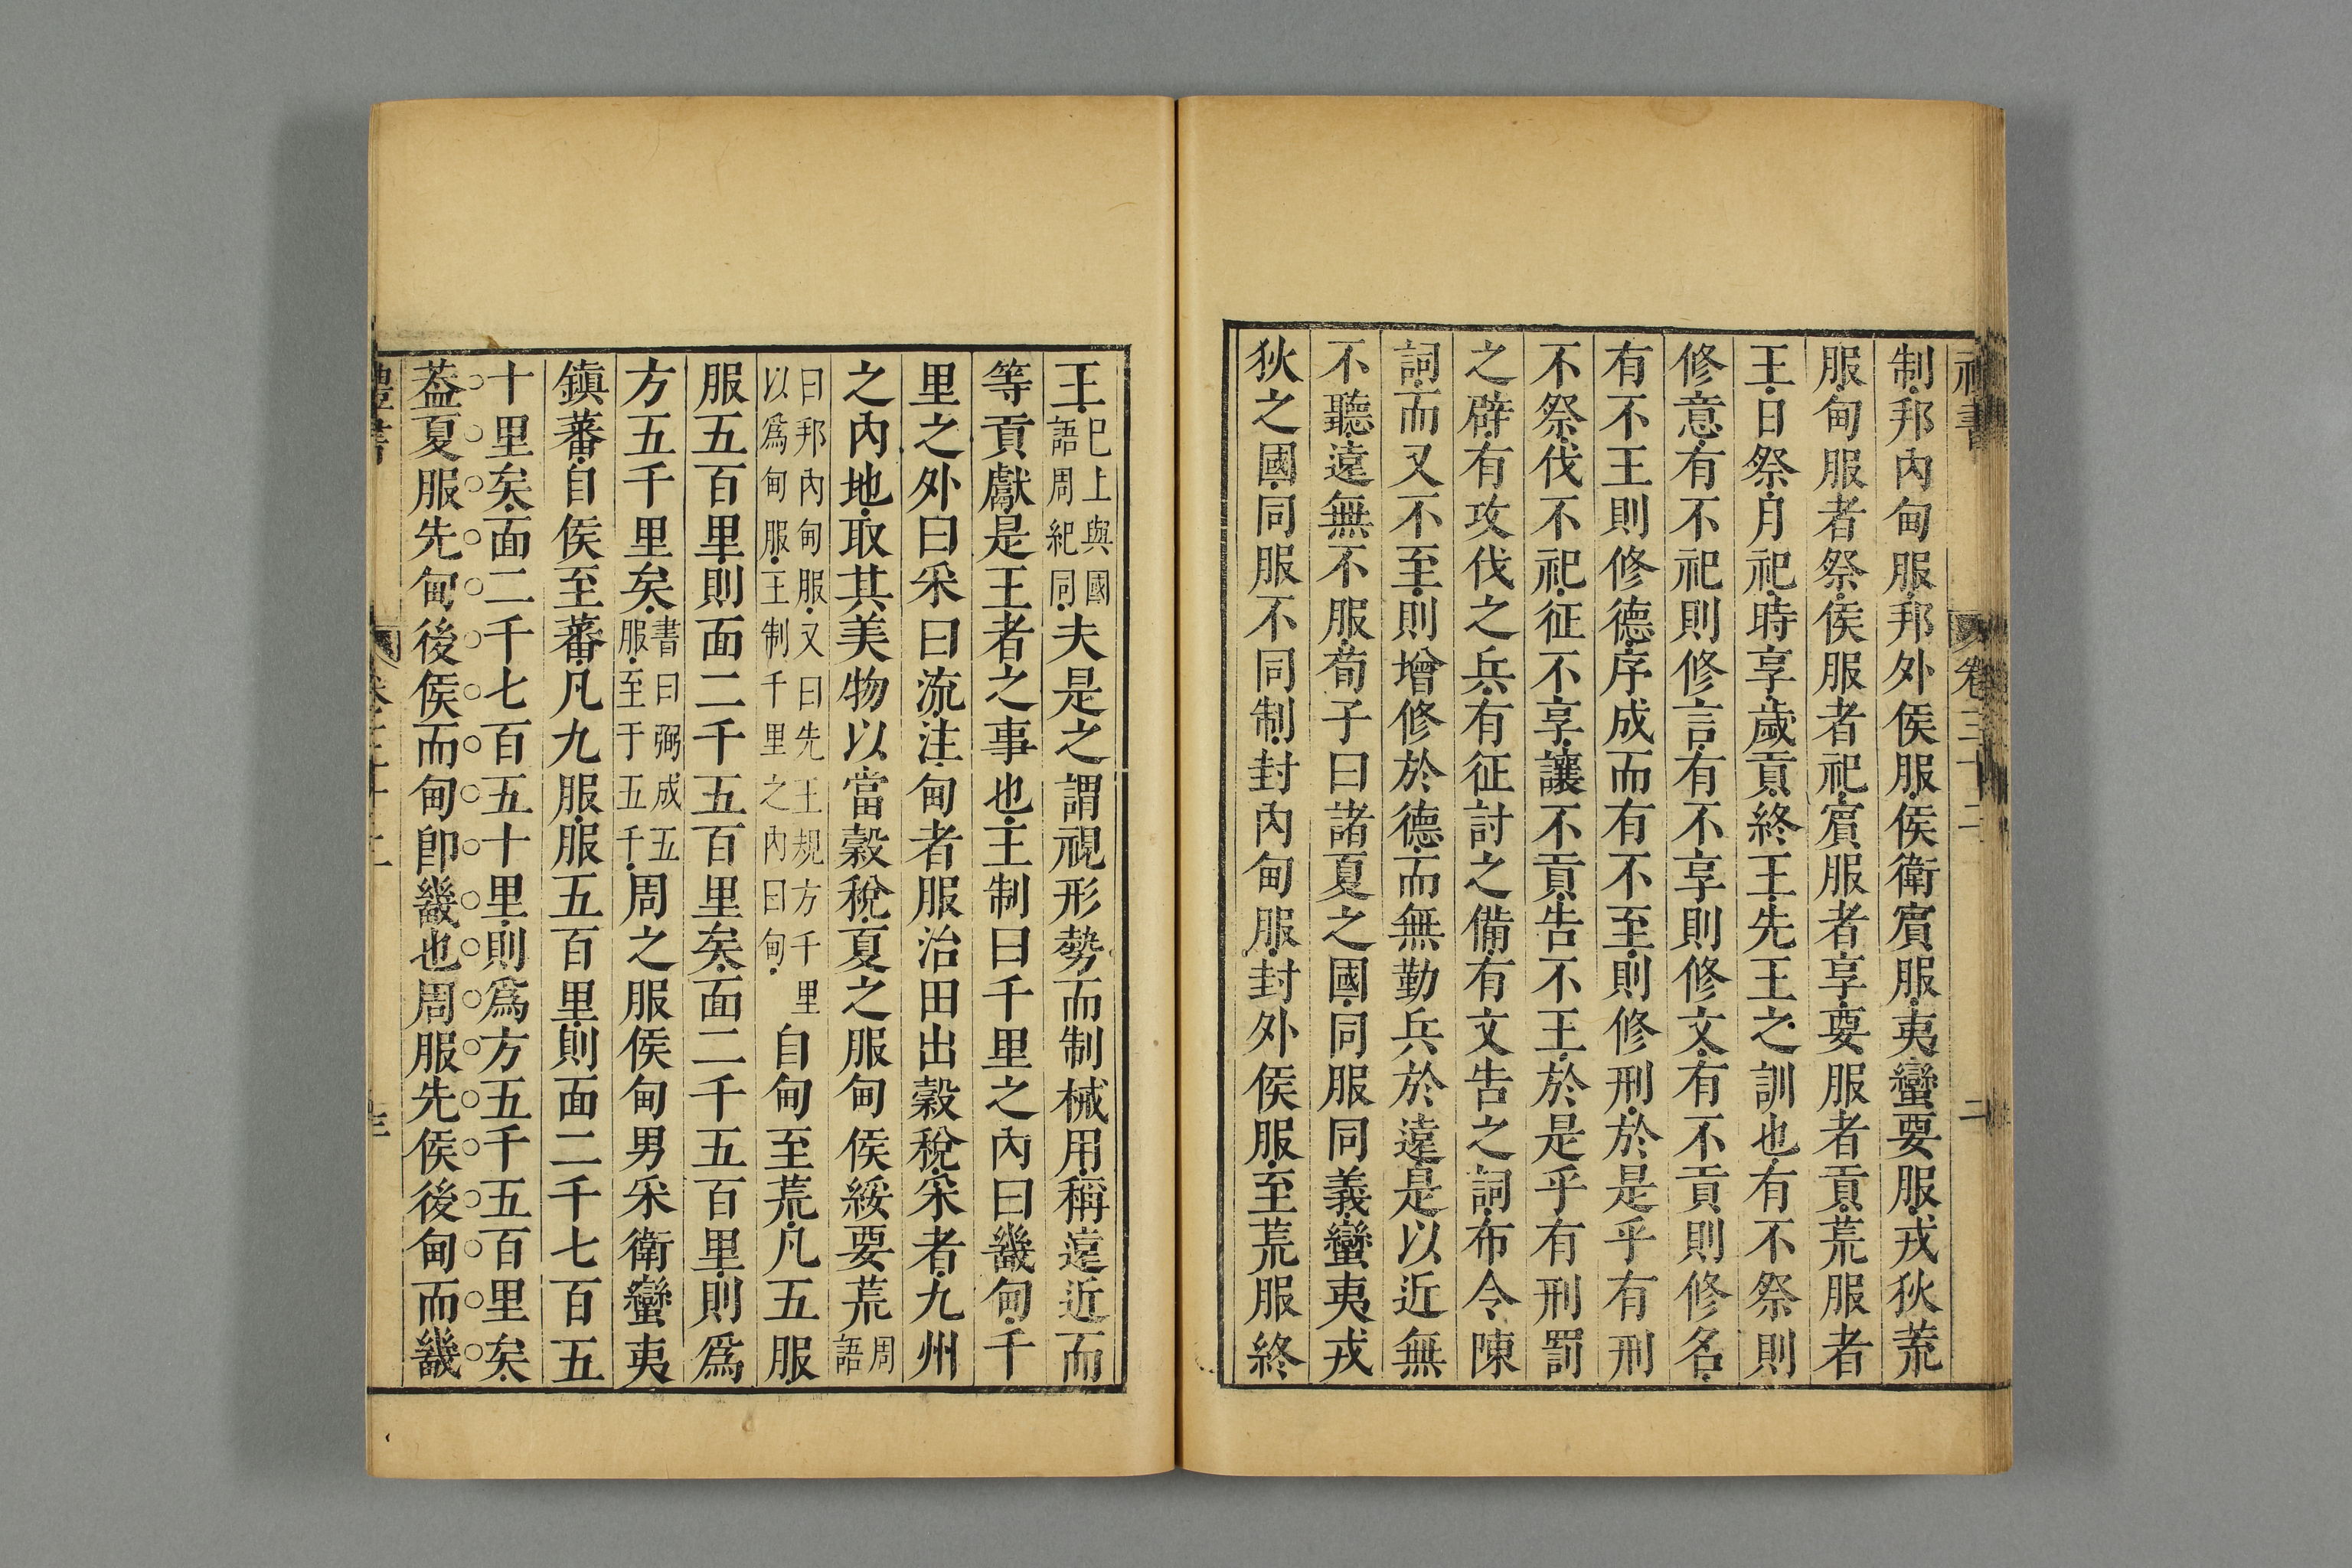 禮書 卷三十二 二
制邦內甸服邦外侯服侯衛賔服夷蠻要服戎狄荒
服甸服者祭侯服者祀賔服者享要服者貢荒服者
王日祭月祀時享歲貢終王先王之訓也有不祭則
修意有不祀則修言有不享則修文有不貢則修名
有不王則修德序成而有不至則修刑於是乎有刑
不祭伐不祀征不享讓不貢告不王於是乎有刑罰
之辟有攻伐之兵有征討之備有文告之詞布令陳
詞而又不至則增修於德而無勤兵於遠是以近無
不聽遠無不服荀子曰諸夏之國同服同義蠻夷戎
狄之國同服不同制封內甸服封外侯服至荒服終
王巳上與國語周紀同夫是之謂視形勢而制械用稱遠近而
等貢獻是王者之事也王制曰千里之內曰畿甸千
里之外曰采曰流注甸者服治田出穀稅采者九州
之內地取其美物以當穀稅夏之服甸侯綏要荒周語
曰邦內甸服又曰先王規方千里以爲甸服王制千里之內曰甸自甸至荒凡五服
服五百里則面二千五百里矣面二千五百里則爲
方五千里矣書曰弼成五服至于五千周之服侯甸男采衛蠻夷
鎮蕃自侯至蕃凡九服服五百里則面二千七百五
十里矣面二千七百五十里則爲方五千五百里矣
葢夏服先甸後侯而甸卽畿也周服先侯後甸而畿
禮書 卷三十二 三